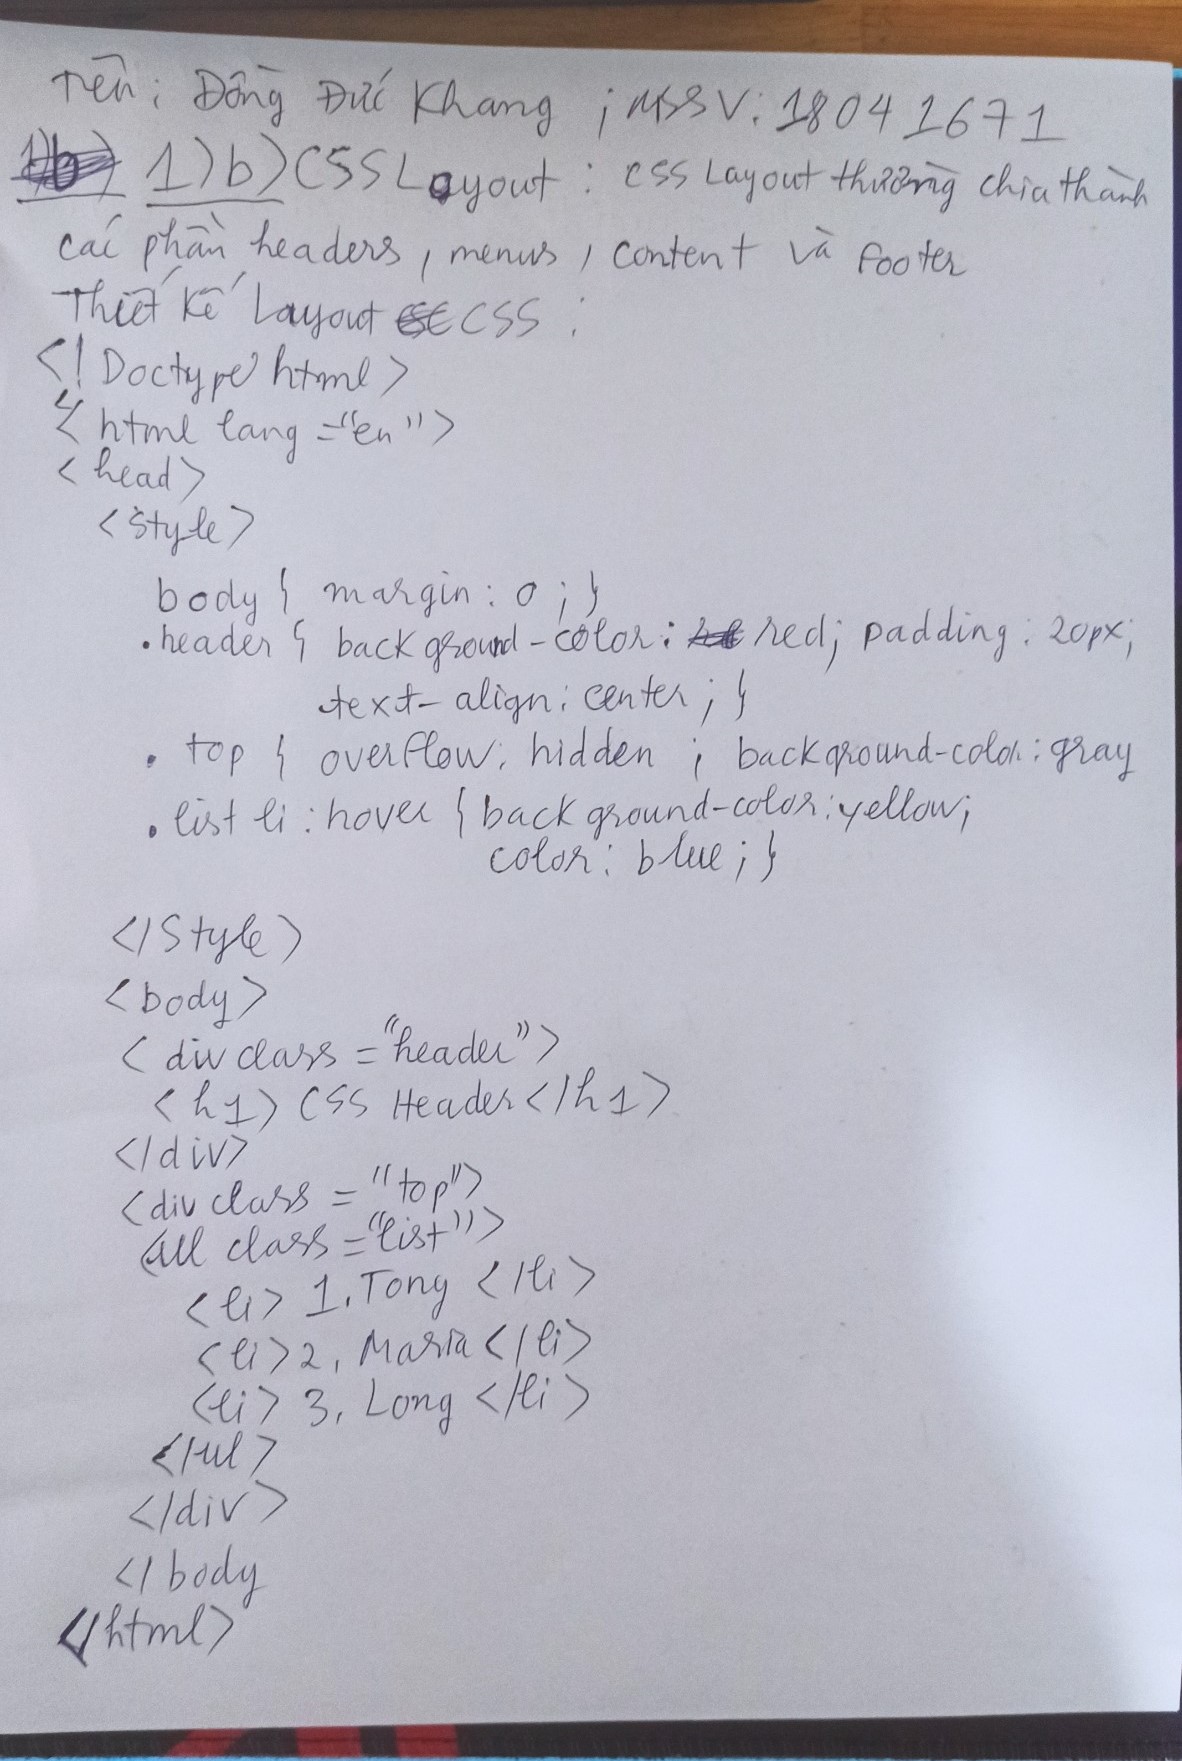 Tên: Đồng Đức Khang ; MSSV: 18041671
1)b) CSS Layout : CSS Layout thường chia thành
các phần headers, menus, content và footer
Thiết kế Layout CSS :
<! Doctype html>
<html lang="en">
<head>
<style>
body { margin: 0; }
.header { background-color: red; padding: 20px;
text-align: center; }
. top { overflow: hidden ; background-color: gray
. list li : hover { background-color: yellow;
color: blue; }
</style>
<body>
<div class="header">
<h1> CSS Header </h1>
</div>
<div class = "top">
<ul class="list">
<li> 1. Tong </li>
<li> 2, Maria </li>
<li> 3, Long </li>
</ul>
</div>
</body
</html>